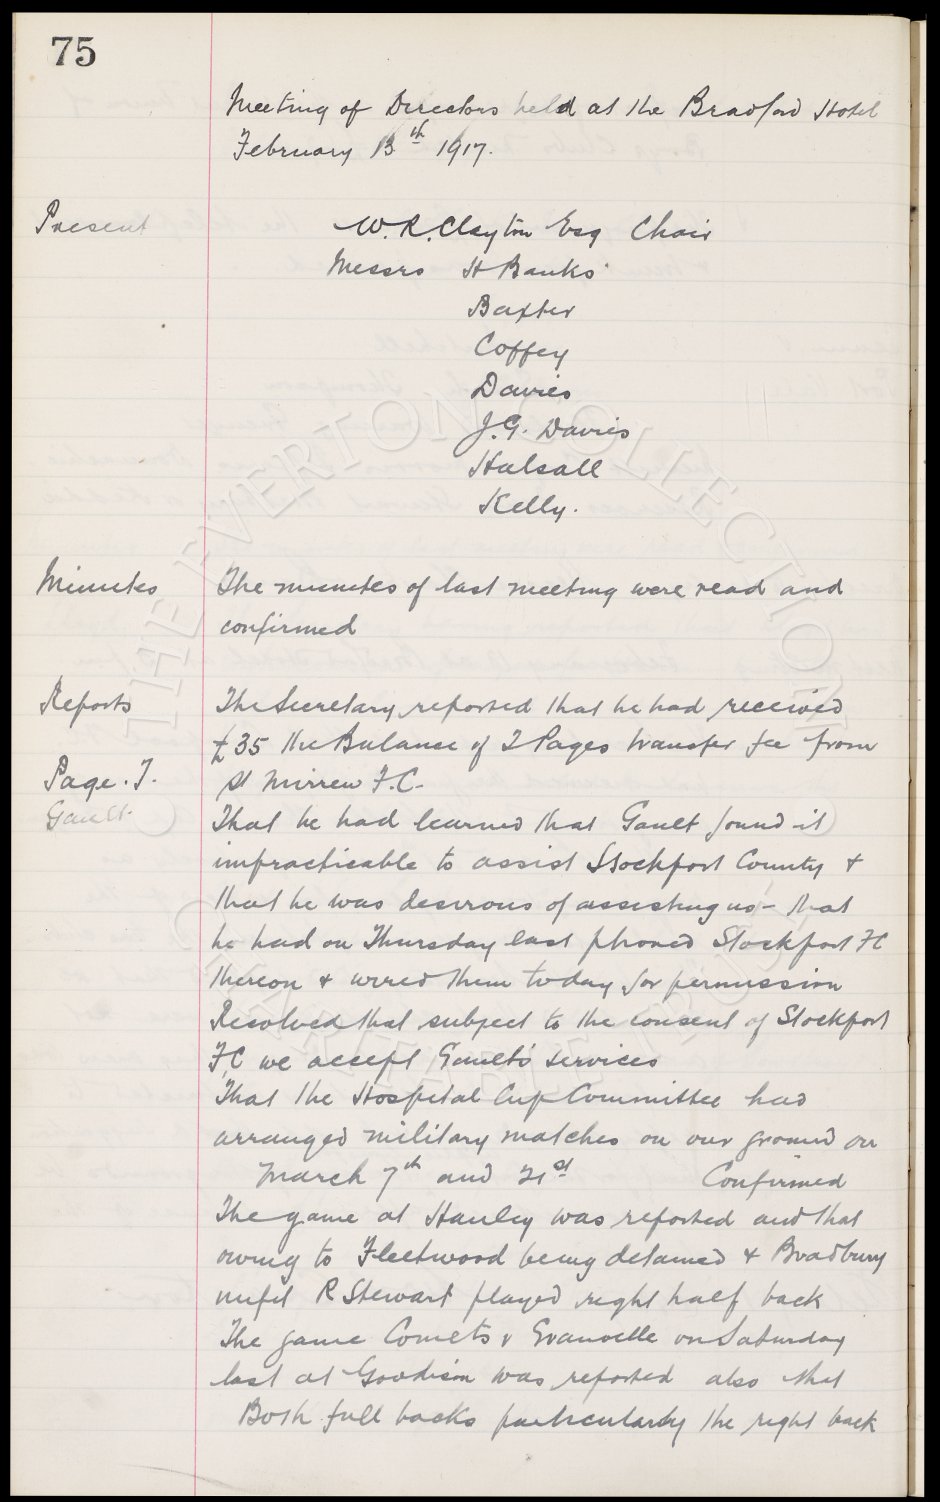 75
Meeting of Directors held at the Bradford Hotel
February 13th 1917.
Present
W. R. Clayton Esq Chair
Messrs H Banks
Baxter
Coffey
Davies
J. G. Davies
Halsall
Kelly.
Minutes
The minutes of last meeting were read and
confirmed
Reports
The Secretary reported that he had received
£35 the Balance of T Pages transfer fee from
Page. T.
St Mirren F.C.
Gault.
That he had learned that Gault found it
impracticable to assist Stockport County &
that he was desirous of assisting us - that
he had on Thursday last phoned Stockport FC
thereon & wired them today for permission
Resolved that subject to the consent of Stockport
F,C we accept Gault's services
That the Hospital Cup Committee had
arranged military matches on our ground on
March 7th and 21st Confirmed
The game at Hanley was reported and that
owing to Fleetwood being detained & Bradbury
unfit R Stewart played right half back
The game Comets v on Saturday
last at Goodison was reported also that
Both full backs particularly the right back
THE EVERTON COLLECTION
CHARITABLE TRUST